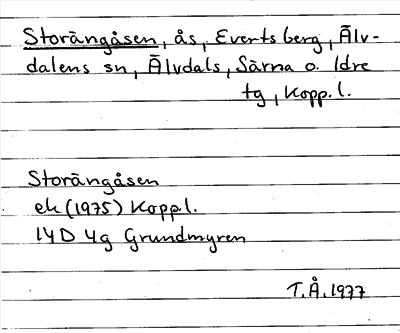 Storängåsen, ås, Evertsberg, Älv-
dalens sn, Älvdals, Särna o. Idre
tg, Kopp. l.
Storängåsen
ek (1975) Koppl.
14D 4g Grundmyren
T.Å. 1977